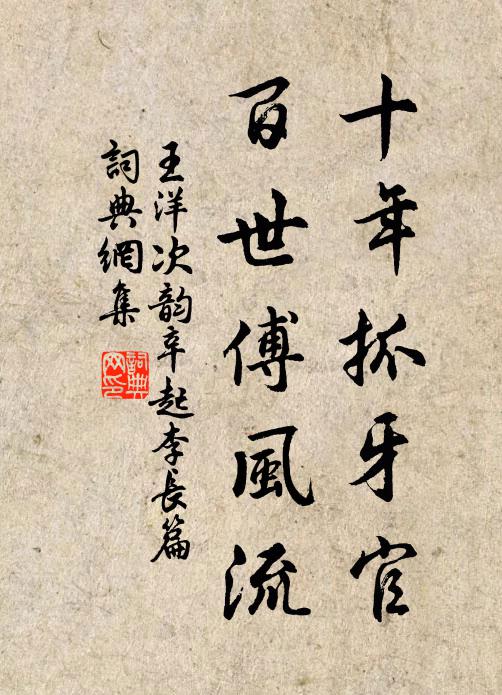 十年抓牙官
百世傅風流
王洋次韵辛起李長篇
詞典網集
詞典網印